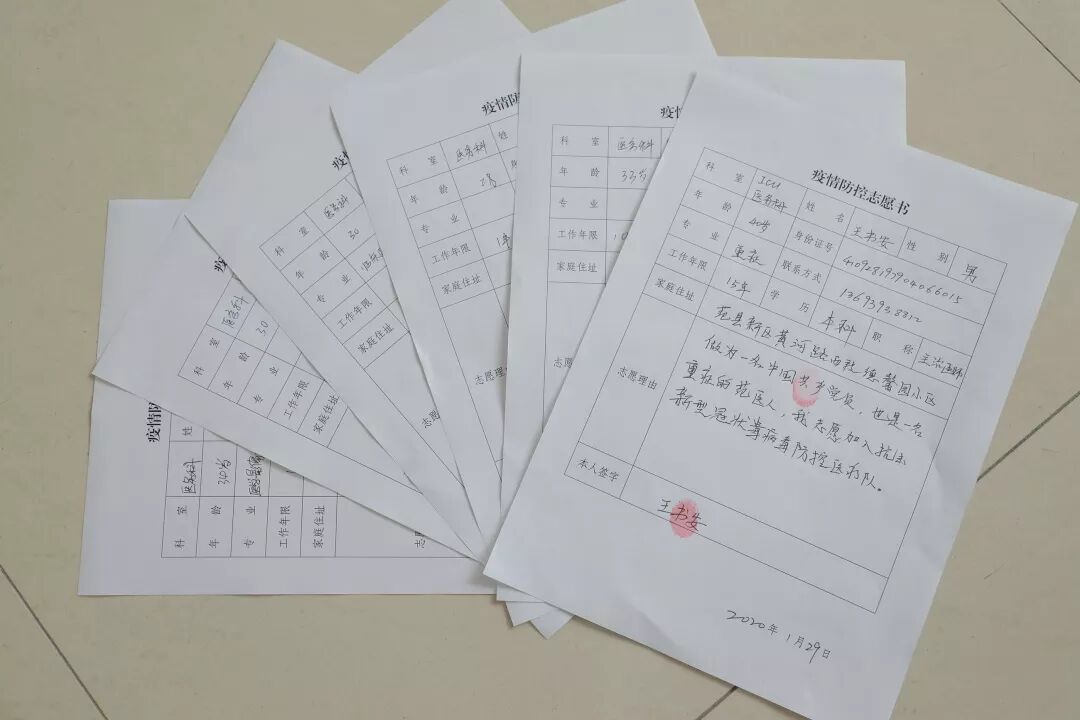 疫情防控志愿书
科 室 ICU 医务科 姓 名 王书安 性 别 男
年 龄 40岁 身份证号 410928197904066015
专 业 重症 联系方式
工作年限 15年 学 历 本科 职 称 主治医师
家庭住址 范县新区黄河路西段德馨园小区
志愿理由
做为一名中国共产党员，也是一名
重症的范医人，我志愿加入抗击
新型冠状毒病毒防控医疗队。
本人签字
王书安
2020年1月29日
疫情
科 室 医务科
年 龄 33岁
专 业
工作年限
家庭住址
志愿
疫情防
科 室 医务科 姓
年 龄
专 业
工作年限 1年
家庭住址
志愿理由
疫
科 室 医务科
年 龄 30
专 业
工作年限
家庭住址
志愿
科 室 医务科
年 龄 30
专 业
工作年限
家庭住址
疫情防控
科 室 医务科 姓
年 龄 34岁
专 业
工作年限
家庭住址
志